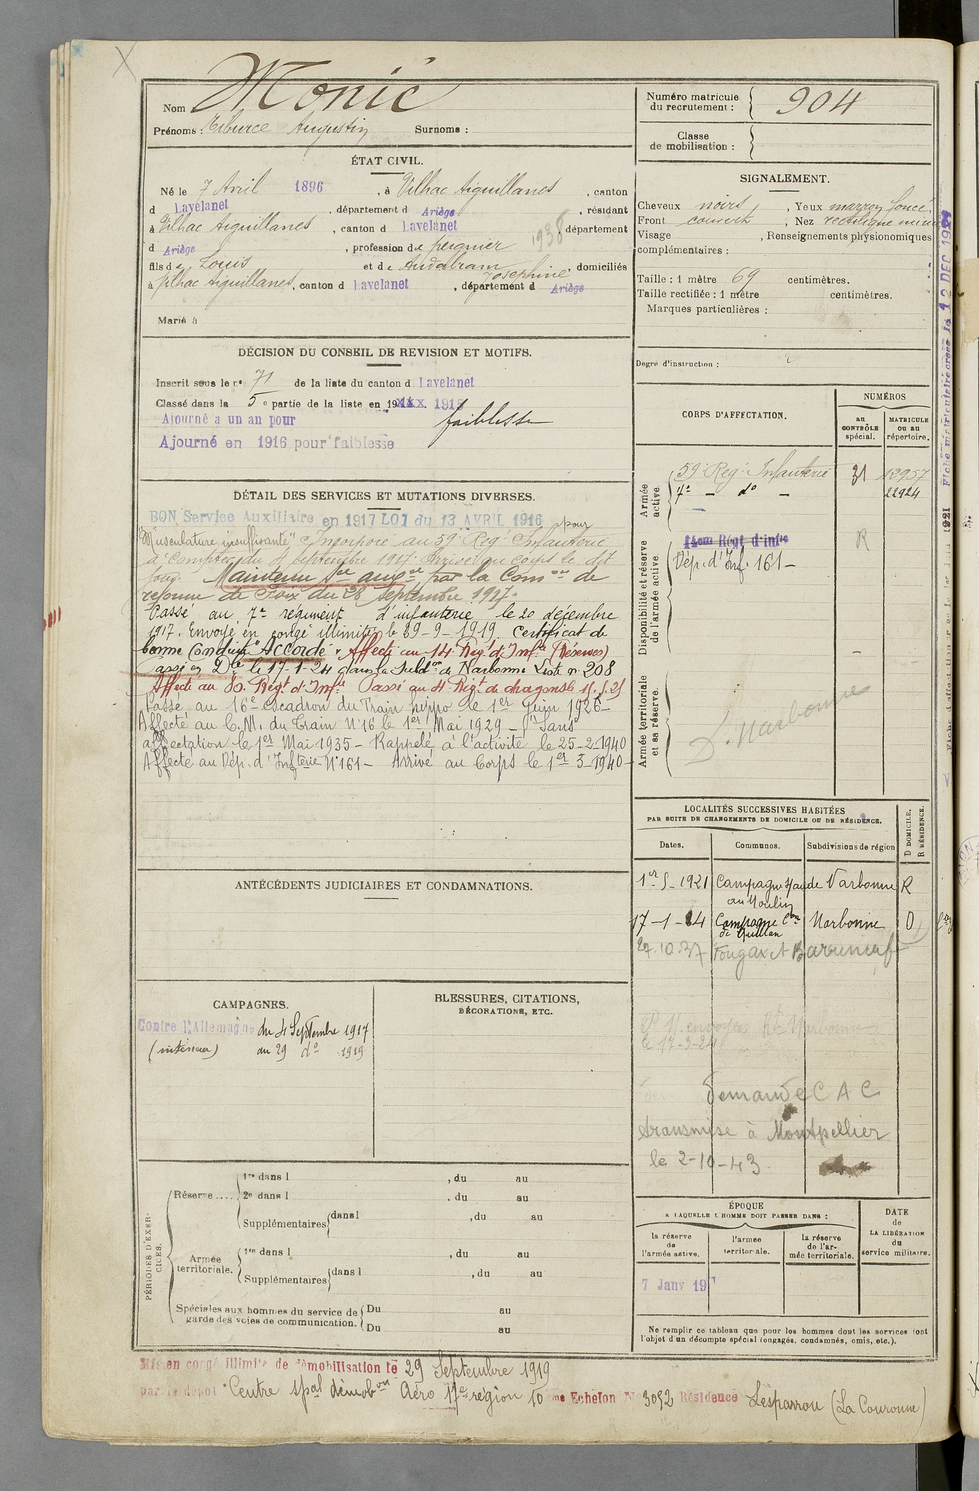 Nom Monié
Prénoms : Tiburce Augustin Surnoms :
Numéro matricule du recrutement : 904
Classe de mobilisation :
ÉTAT CIVIL.
Né le 7 Avril 1896, à Vilhac Aiguillanes, canton
d Lavelanet, département d Ariège, résidant
à Vilhac Aiguillanes, canton d Lavelanet département
d Ariège, profession de peignier 1938
fils de Louis et de Andabram Josephine, domiciliés
à Vilhac Aiguillanes, canton d Lavelanet, département d Ariège
Marié à
SIGNALEMENT.
Cheveux noirs, Yeux marron foncé
Front couvert, Nez rectiligne
Visage , Renseignements physionomiques
complémentaires :
Taille : 1 mètre 69 centimètres.
Taille rectifiée : 1 mètre centimètres.
Marques particulières :
Degré d'instruction :
DÉCISION DU CONSEIL DE REVISION ET MOTIFS.
Inscrit sous le n° 71 de la liste du canton d Lavelanet
Classé dans la 5e partie de la liste en 19 1915
Ajourné a un an pour faiblesse
Ajourné en 1916 pour faiblesse
CORPS D'AFFECTATION.
NUMÉROS
au CONTRÔLE spécial.
MATRICULE ou au répertoire.
Armée active.
59e Reg. Infanterie 31 12957
7e - do - 22924
Disponibilité et réserve de l'armée active.
14eme Régt d'infie R
Dép. d'Inf. 161 -
Armée territoriale et sa réserve.
D. Narbonne
DÉTAIL DES SERVICES ET MUTATIONS DIVERSES.
BON Service Auxiliaire en 1917 LOI du 13 AVRIL 1916 pour
"Musculature insuffisante" Incorporé au 59e Reg. Infanterie
à compter du 4 septembre 1917. Arrivé au corps le dit
jour. Maintenu Sce auxre par la Comon de
réforme de Foix du 28 Septembre 1917.
Passé au 7e régiment d'infanterie le 20 décembre
1917. Envoyé en congé illimité le 29-9-1919. Certificat de
bonne Conduite "Accordé". Affecté au 14 Reg. d'Infie (Réserves)
Passé en Dle le 17-1-24 dans la Subdon de Narbonne Liste n° 208
Affecté au 80. Régt d'Infie Passé au 4 Régt de dragons le 15.5.25
Passé au 16e escadron du Train hippo le 1er Juin 1926 -
Affecté au C.M. du Train N°16 le 1er Mai 1929 - Sans
affectation le 1er Mai 1935 - Rappelé à l'activité le 25-2-1940
Affecté au Dép. d'Infterie N°161 - Arrivé au Corps le 1er 3-1940 -
LOCALITÉS SUCCESSIVES HABITÉES
PAR SUITE DE CHANGEMENTS DE DOMICILE OU DE RÉSIDENCE.
Dates. Communes. Subdivisions de région D DOMICILE. R RÉSIDENCE.
1er-5-1921 Campagne Aude Narbonne R
au Moulin
17-1-24 Campagne Con de Quillan Narbonne D
27.10.37 Fougax et Barrineuf
le 17-3-24
demande C A C
transmise à Montpellier
le 2-10-43
ANTÉCÉDENTS JUDICIAIRES ET CONDAMNATIONS.
CAMPAGNES.
Contre l'Allemagne du 4 Septembre 1917
(intérieur) au 29 do 1919
BLESSURES, CITATIONS,
DÉCORATIONS, ETC.
PÉRIODES D'EXERCICES.
Réserve .... 1re dans l , du au
2e dans l , du au
Supplémentaires dans l , du au
Armée territoriale. 1re dans l , du au
Supplémentaires dans l , du au
Spéciales aux hommes du service de garde des voies de communication. Du au
Du au
ÉPOQUE
A LAQUELLE L'HOMME DOIT PASSER DANS :
la réserve de l'armée active.
l'armée territoriale.
la réserve de l'armée territoriale.
DATE de LA LIBÉRATION du service militaire.
7 Janv 19
Ne remplir ce tableau que pour les hommes dont les services font
l'objet d'un décompte spécial (engagés, condamnés, omis, etc.).
Mis en congé illimité de démobilisation le 29 Septembre 1919
par le dépôt Centre spal démobon Aéro 17e région 10eme Echelon N° 3052 Résidence Lesparrou (La Couronne)